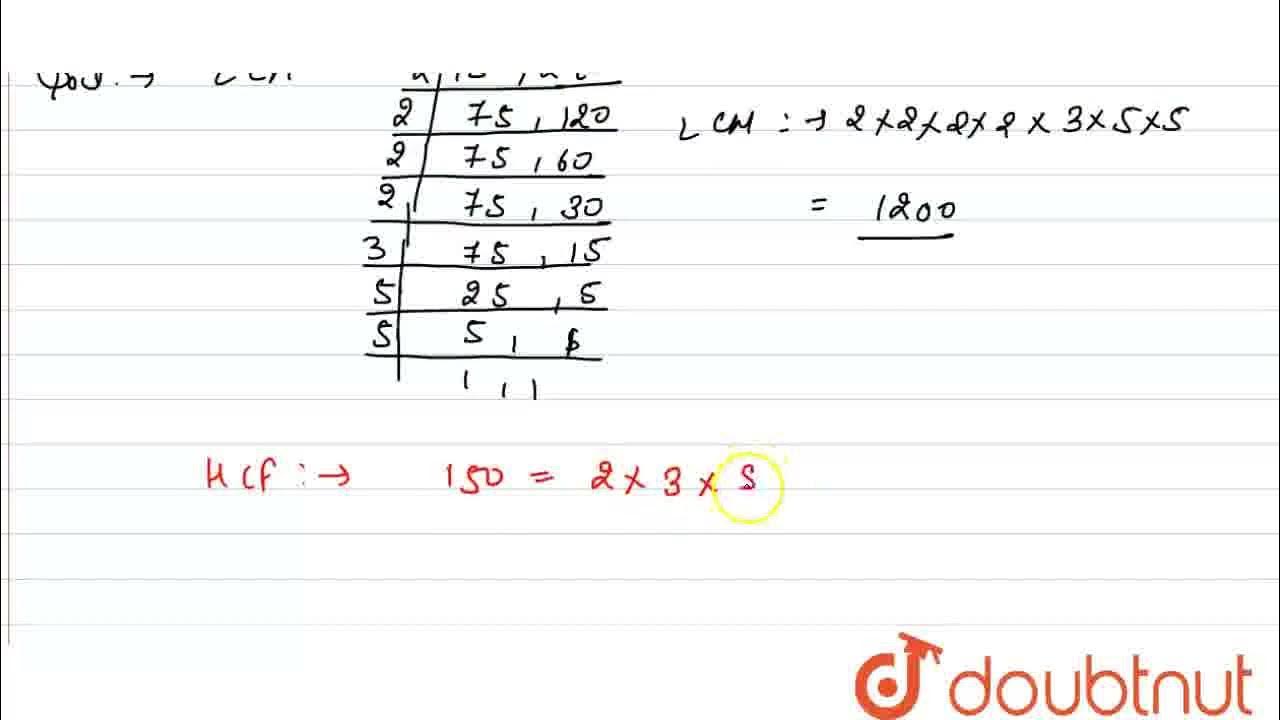 2 | 75 , 120
2 | 75 , 60
2 | 75 , 30
3 | 75 , 15
5 | 25 , 5
5 | 5 ,
1 , 1
LCM : → 2 × 2 × 2 × 2 × 3 × 5 × 5
= 1200
HCF : → 150 = 2 × 3 × 5
doubtnut